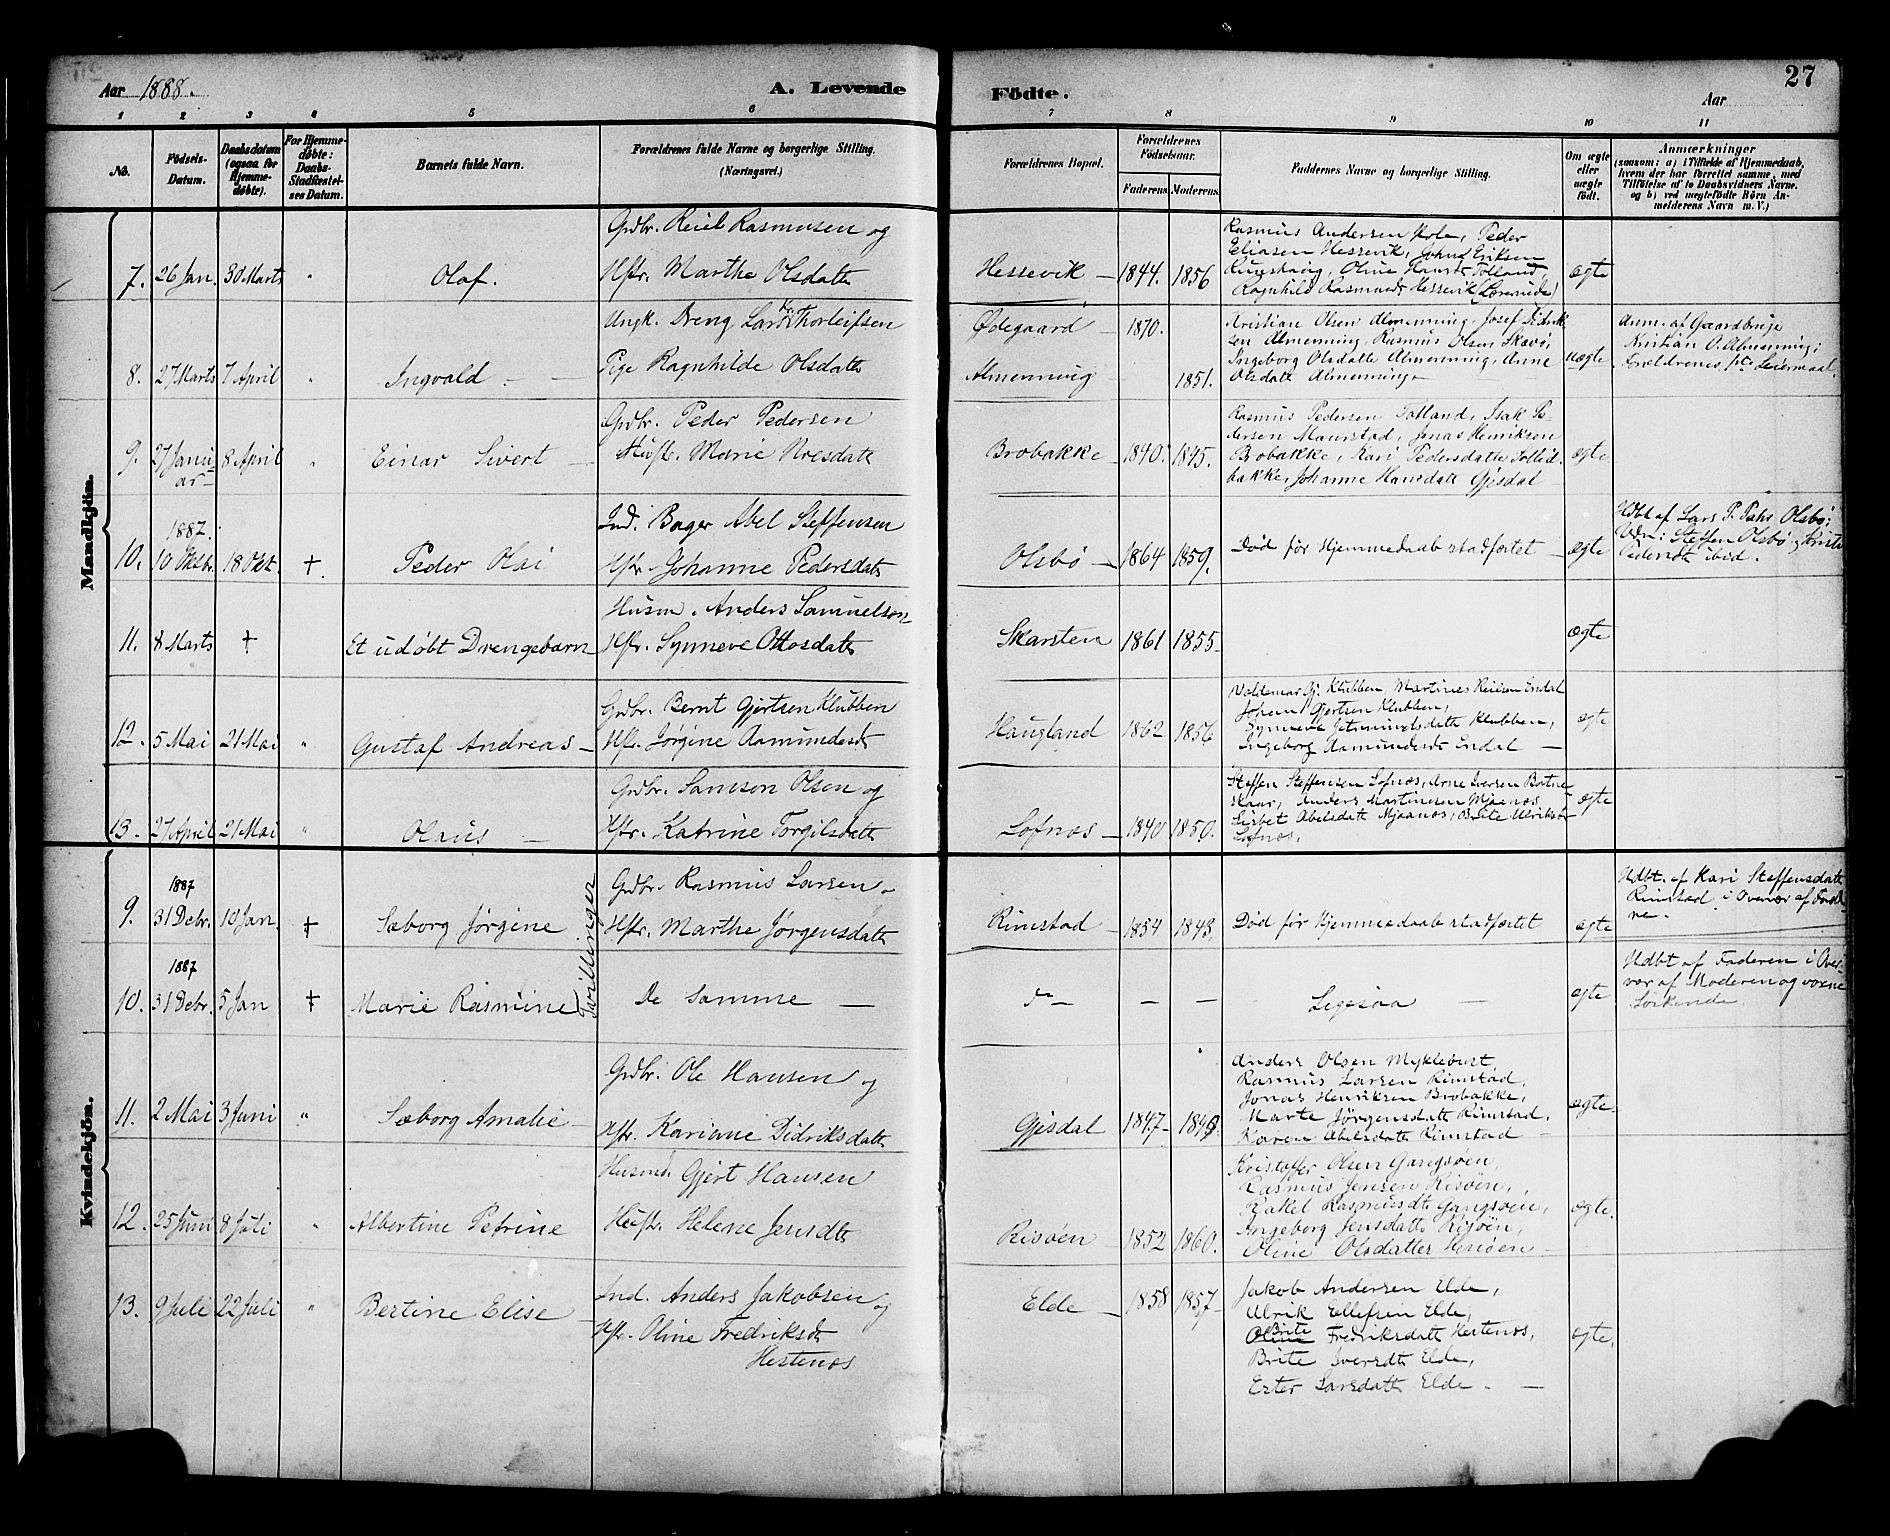 Aar 1888.
A. Levende Födte.
27
Aar
1 2 3 4 5 6 7 8 9 10 11
No.
Födsels-Datum.
Daabsdatum (ogsaa for Hjemme-døbte).
For Hjemme-døbte: Daabs-Stadfæstel-ses Datum.
Barnets fulde Navn.
Forældrenes fulde Navne og borgerlige Stilling.
(Næringsvei.)
Forældrenes Bopæl.
Forældrenes Födselsaar.
Faderens. Moderens.
Faddernes Navne og borgerlige Stilling.
Om ægte eller uægte født.
Anmærkninger
(saasom: a) i Tilfælde af Hjemmedaab,
hvem der har forrettet samme, med
Tilføielse af to Daabsvidners Navne.
og b) ved uægtefødte Börn An-
melderens Navn m. V.)
Mandkjön.
7. 26 Jan. 30 Marts " Olaf.
Grdbr. Reiel Rasmusen og
Hstr. Marthe Olsdatt
Hessevik 1844. 1856
Rasmus Andersen Hole, Peder
Eliasen Hessevik, Johns Eriksen
Ragnhild Rasmusdt Hessevik
ægte
8. 27 Marts 7 April " Ingvald
Ungk. Dreng Lars Thorleifsen
Pige Ragnhilde Olsdatt
Ødegaard 1870.
Almenning 1851.
Kristian Olsen Almenning, Josef Didrik-
sen Almenning, Rasmus Olsen Skavø,
Ingeborg Olsdatte Almenning, Anne
Olsdatt Almenning
uægte
Anm. af Gaardbruger
Kristian O. Almenning;
Forældrenes 1ste Leiermaal.
9. 27 Janu-
ar 8 April " Einar Sivert
Grdbr. Peder Pedersen
Hust. Marie Roesdatt
Brobakke 1840. 1845.
Rasmus Pedersen Totland, Isak Pe-
dersen Maurstad, Jonas Henriksen
Brobakke, Kari Pedersdatte Tollid-
bakke, Johanne Hansdatt Gjesdal
ægte
1887.
10. 10 Oktbr. 18 Okt. + Peder Olai
Ind. Bager Abel Steffensen
Hstr. Johanne Pedersdatt
Olsbø 1864 1859.
Død før Hjemmedaab stadfæstet
ægte
Hdbt af Lars P. Olsbø;
Vdn: Steffen Olsbø
Pedersdt ibid.
11. 8 Marts + Et udøbt Drengebarn
Husm. Anders Samuelson
Hstr. Synneve Ottosdatt
Skarsten 1861 1855
ægte
12. 5 Mai 21 Mai " Gustaf Andreas
Grdbr. Bernt Gjertsen Klubben
Hstr. Jørgine Aamundesdt
Haugland 1862 1856
Valdemar Gj. Klubben, Martines Reielsen Endal
Johan Gjertsen Klubben,
Synneve Jetmundsdatt Klubben,
Ingeborg Aamundesdt Endal
ægte
13. 27 April 21 Mai " Olaus
Grdbr. Samson Olsen og
Hstr. Katrine Torgilsdatt
Lofnæs 1840 1850.
Steffen Steffensen Lofnæs, Arne Iversen Botne
skaar, Anders Martinsen Mjaanæs,
Lisbet Abelsdatt Mjaanæs, Brite Ulriksdt
Lofnæs.
ægte
Kvindekjön.
1887
9. 31 Debr. 10 Jan + Sæborg Jørgine
Tvillinger
Grdbr. Rasmus Larsen
Hstr. Marthe Jørgensdatt
Rimstad 1854 1843,
Død før Hjemmedaab stadfæstet
ægte
Hdbt. af Kari Steffensdatt
Rimstad i Overvær af Foræl-
ne.
1887
10. 31 Debr. 5 Jan + Marie Rasmine
De samme
Ligesaa
ægte
Hdbt af Faderen i Over-
vær af Moderen og voxne
Søskende.
11. 2 Mai 3 Juni " Sæborg Amalie
Grdbr. Ole Hansen og
Hstr. Kariane Didriksdatt
Gjesdal 1847 1849
Anders Olsen Myklebust,
Rasmus Larsen Rimstad,
Jonas Henriksen Brobakke,
Marte Jørgensdatt Rimstad,
Karen Abelsdatt Rimstad
ægte
12. 25 Juni 8 Juli " Albertine Petrine
Husmd. Gjert Hansen
Hustr. Helene Jensdt
Risøen 1852 1860.
Kristoffer Olsen Gangsøen,
Rasmus Jensen Risøen,
Rakel Rasmusdt Gangsøen,
Ingeborg Jensdatt Risøen,
Oline Olsdatter Risøen
ægte.
13. 9 Juli 22 Juli " Bertine Elise
Ind. Anders Jakobsen og
Hstr. Oline Fredriksdt
Hestenæs
Elde 1858 1857
Jakob Andersen Elde,
Ulrik Ellefsen Elde,
Brite
Oline Fredriksdatt Hestenæs,
Brite Iversdt Elde,
Ester Larsdatt Elde.
ægte.